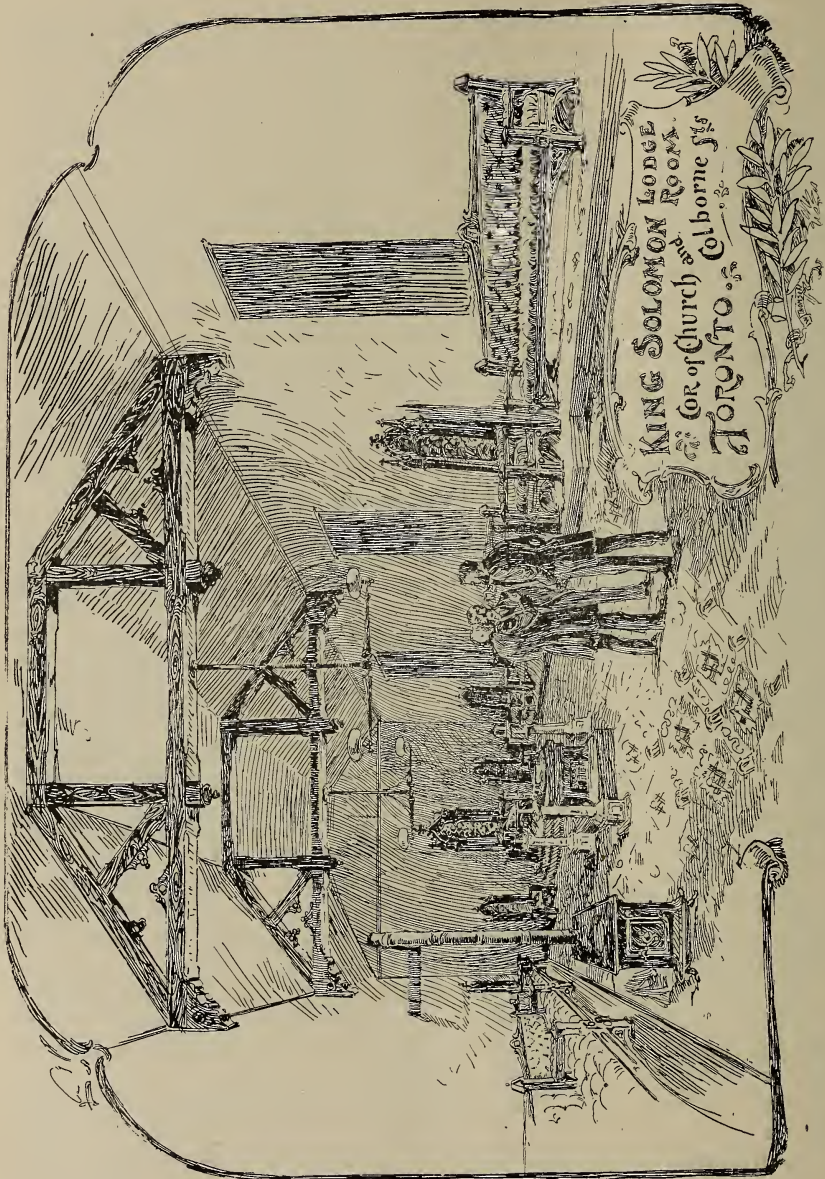 KING SOLOMON LODGE ROOM.
COR of Church and Colborne Sts
TORONTO.